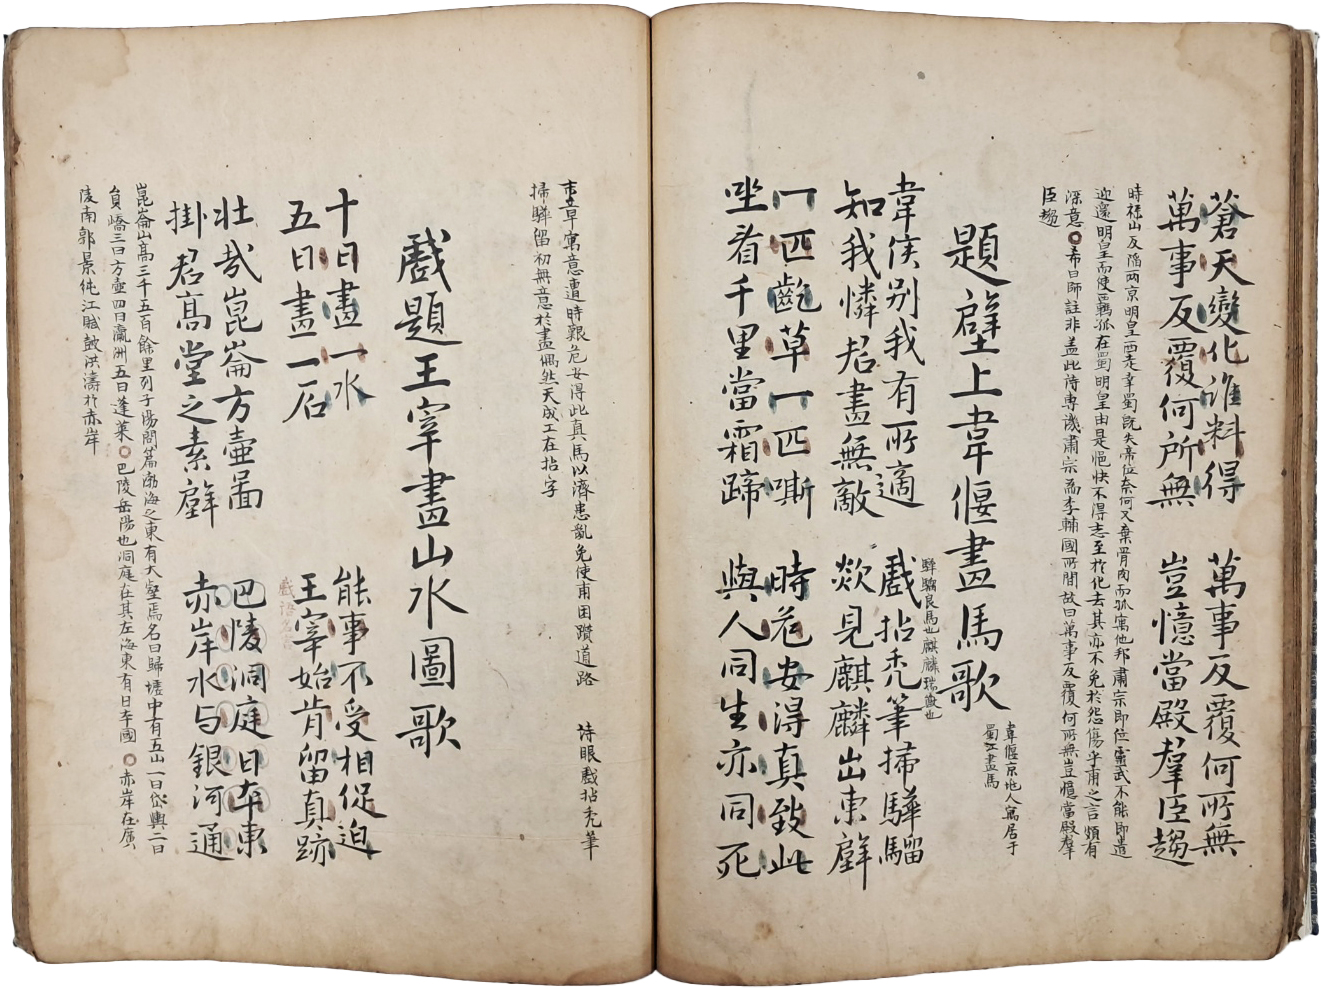 蒼天變化誰料得　萬事反覆何所無
萬事反覆何所無　豈憶當殿羣臣趨
時祿山反陷兩京明皇西走幸蜀既失帝位奈何又棄骨肉而孤寓他邦肅宗即位靈武不能即遣
迎還明皇而使羈孤在蜀明皇由是悒怏不得志至於化去其亦不免於怨傷乎甫之言頗有
深意○希曰師註非盖此詩專譏肅宗為李輔國所間故曰萬事反覆何所無豈憶當殿羣
臣趨
題壁上韋偃畫馬歌
韋偃京地人寓居于
蜀工畫馬
驊騮良馬也麒麟瑞獸也
韋侯别我有所適　戲拈禿筆掃驊騮
知我憐君畫無敵　欻見麒麟出東壁
一匹齕草一匹嘶　時危安得真致此
坐看千里當霜蹄　與人同生亦同死
韋寓意遭時艱危安得此真馬以濟患亂免使甫困躓道路　詩眼戲拈禿筆
掃驊留初無意於畫偶然天成工在拈字
戲題王宰畫山水圖歌
十日畫一水　能事不受相促迫
五日畫一石　王宰始肯留真跡
壯哉崑崙方壺圖　巴陵洞庭日本東
掛君高堂之素壁　赤岸水与銀河通
崑崙山高三千五百餘里列子湯問篇渤海之東有大壑焉名曰歸墟中有五山一曰岱輿二曰
負嶠三曰方壺四曰瀛洲五曰蓬萊○巴陵岳陽也洞庭在其左海東有日本國○赤岸在廣
陵南郭景純江賦鼓洪濤於赤岸